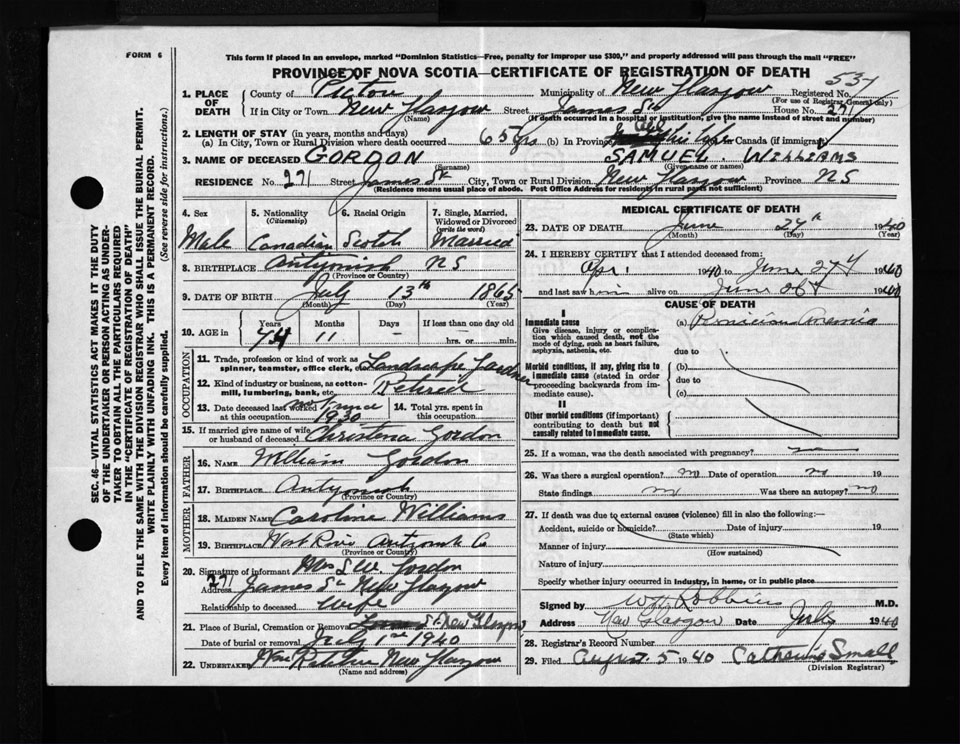 FORM 6
This form if placed in an envelope, marked "Dominion Statistics—Free, penalty for improper use $300," and properly addressed will pass through the mail "FREE"
PROVINCE OF NOVA SCOTIA—CERTIFICATE OF REGISTRATION OF DEATH
SEC. 46—VITAL STATISTICS ACT MAKES IT THE DUTY
OF THE UNDERTAKER OR PERSON ACTING AS UNDER-
TAKER TO OBTAIN ALL THE PARTICULARS REQUIRED
IN THE "CERTIFICATE OF REGISTRATION OF DEATH"
AND TO FILE THE SAME WITH THE DIVISION REGISTRAR WHO SHALL ISSUE THE BURIAL PERMIT.
WRITE PLAINLY WITH UNFADING INK. THIS IS A PERMANENT RECORD.
Every item of information should be carefully supplied. (See reverse side for instructions.)
1. PLACE OF DEATH County of Pictou Municipality of New Glasgow Registered No. 537
(For use of Registrar General only)
If in City or Town New Glasgow Street James St House No. 271
(Name) (If death occurred in a hospital or institution, give the name instead of street and number)
2. LENGTH OF STAY (in years, months and days)
(a) In City, Town or Rural Division where death occurred 65 yrs (b) In Province Canada (if immigrant)
3. NAME OF DECEASED GORDON SAMUEL WILLIAMS
(Surname) (Given name or names)
RESIDENCE No. 271 Street James St City, Town or Rural Division New Glasgow Province NS
(Residence means usual place of abode. Post Office Address for residents in rural parts not sufficient)
4. Sex 5. Nationality (Citizenship) 6. Racial Origin 7. Single, Married, Widowed or Divorced (write the word)
Male Canadian Scotch Married
8. BIRTHPLACE Antigonish NS
(Province or Country)
9. DATE OF BIRTH July 13th 1865
(Month) (Day) (Year)
10. AGE in Years Months Days If less than one day old
74 11 hrs. or min.
OCCUPATION
11. Trade, profession or kind of work as spinner, teamster, office clerk, Landscape Gardner
12. Kind of industry or business, as cotton-mill, lumbering, bank, etc. Retired
13. Date deceased last worked at this occupation not since 1930 14. Total yrs. spent in this occupation
15. If married give name of wife or husband of deceased Christena Gordon
FATHER
16. NAME William Gordon
17. BIRTHPLACE Antigonish
(Province or Country)
MOTHER
18. MAIDEN NAME Caroline Williams
19. BIRTHPLACE West River Antigonish Co
(Province or Country)
20. Signature of informant Mrs S.W. Gordon
Address 271 James St New Glasgow
Relationship to deceased Wife
21. Place of Burial, Cremation or Removal New Glasgow
Date of burial or removal July 1st 1940
22. UNDERTAKER New Glasgow
(Name and address)
MEDICAL CERTIFICATE OF DEATH
23. DATE OF DEATH June 27th 1940
(Month) (Day) (Year)
24. I HEREBY CERTIFY that I attended deceased from
Apr 1 1940 to June 27th 1940
and last saw him alive on June 1940
CAUSE OF DEATH
I
Immediate cause (a) Pernicious Anemia
Give disease, injury or complication which caused death, not the mode of dying, such as heart failure, asphyxia, asthenia, etc.
due to
Morbid conditions, if any, giving rise to immediate cause (stated in order proceeding backwards from immediate cause).
(b)
due to
(c)
II
Other morbid conditions (if important) contributing to death but not causally related to immediate cause.
25. If a woman, was the death associated with pregnancy?
26. Was there a surgical operation? no Date of operation no 19
State findings no Was there an autopsy? no
27. If death was due to external causes (violence) fill in also the following:—
Accident, suicide or homicide? Date of injury 19
(State which)
Manner of injury
(How sustained)
Nature of injury
Specify whether injury occurred in industry, in home, or in public place
Signed by W H Robbins M.D.
Address New Glasgow Date July 1940
28. Registrar's Record Number
29. Filed August 5 1940 Small
(Division Registrar)